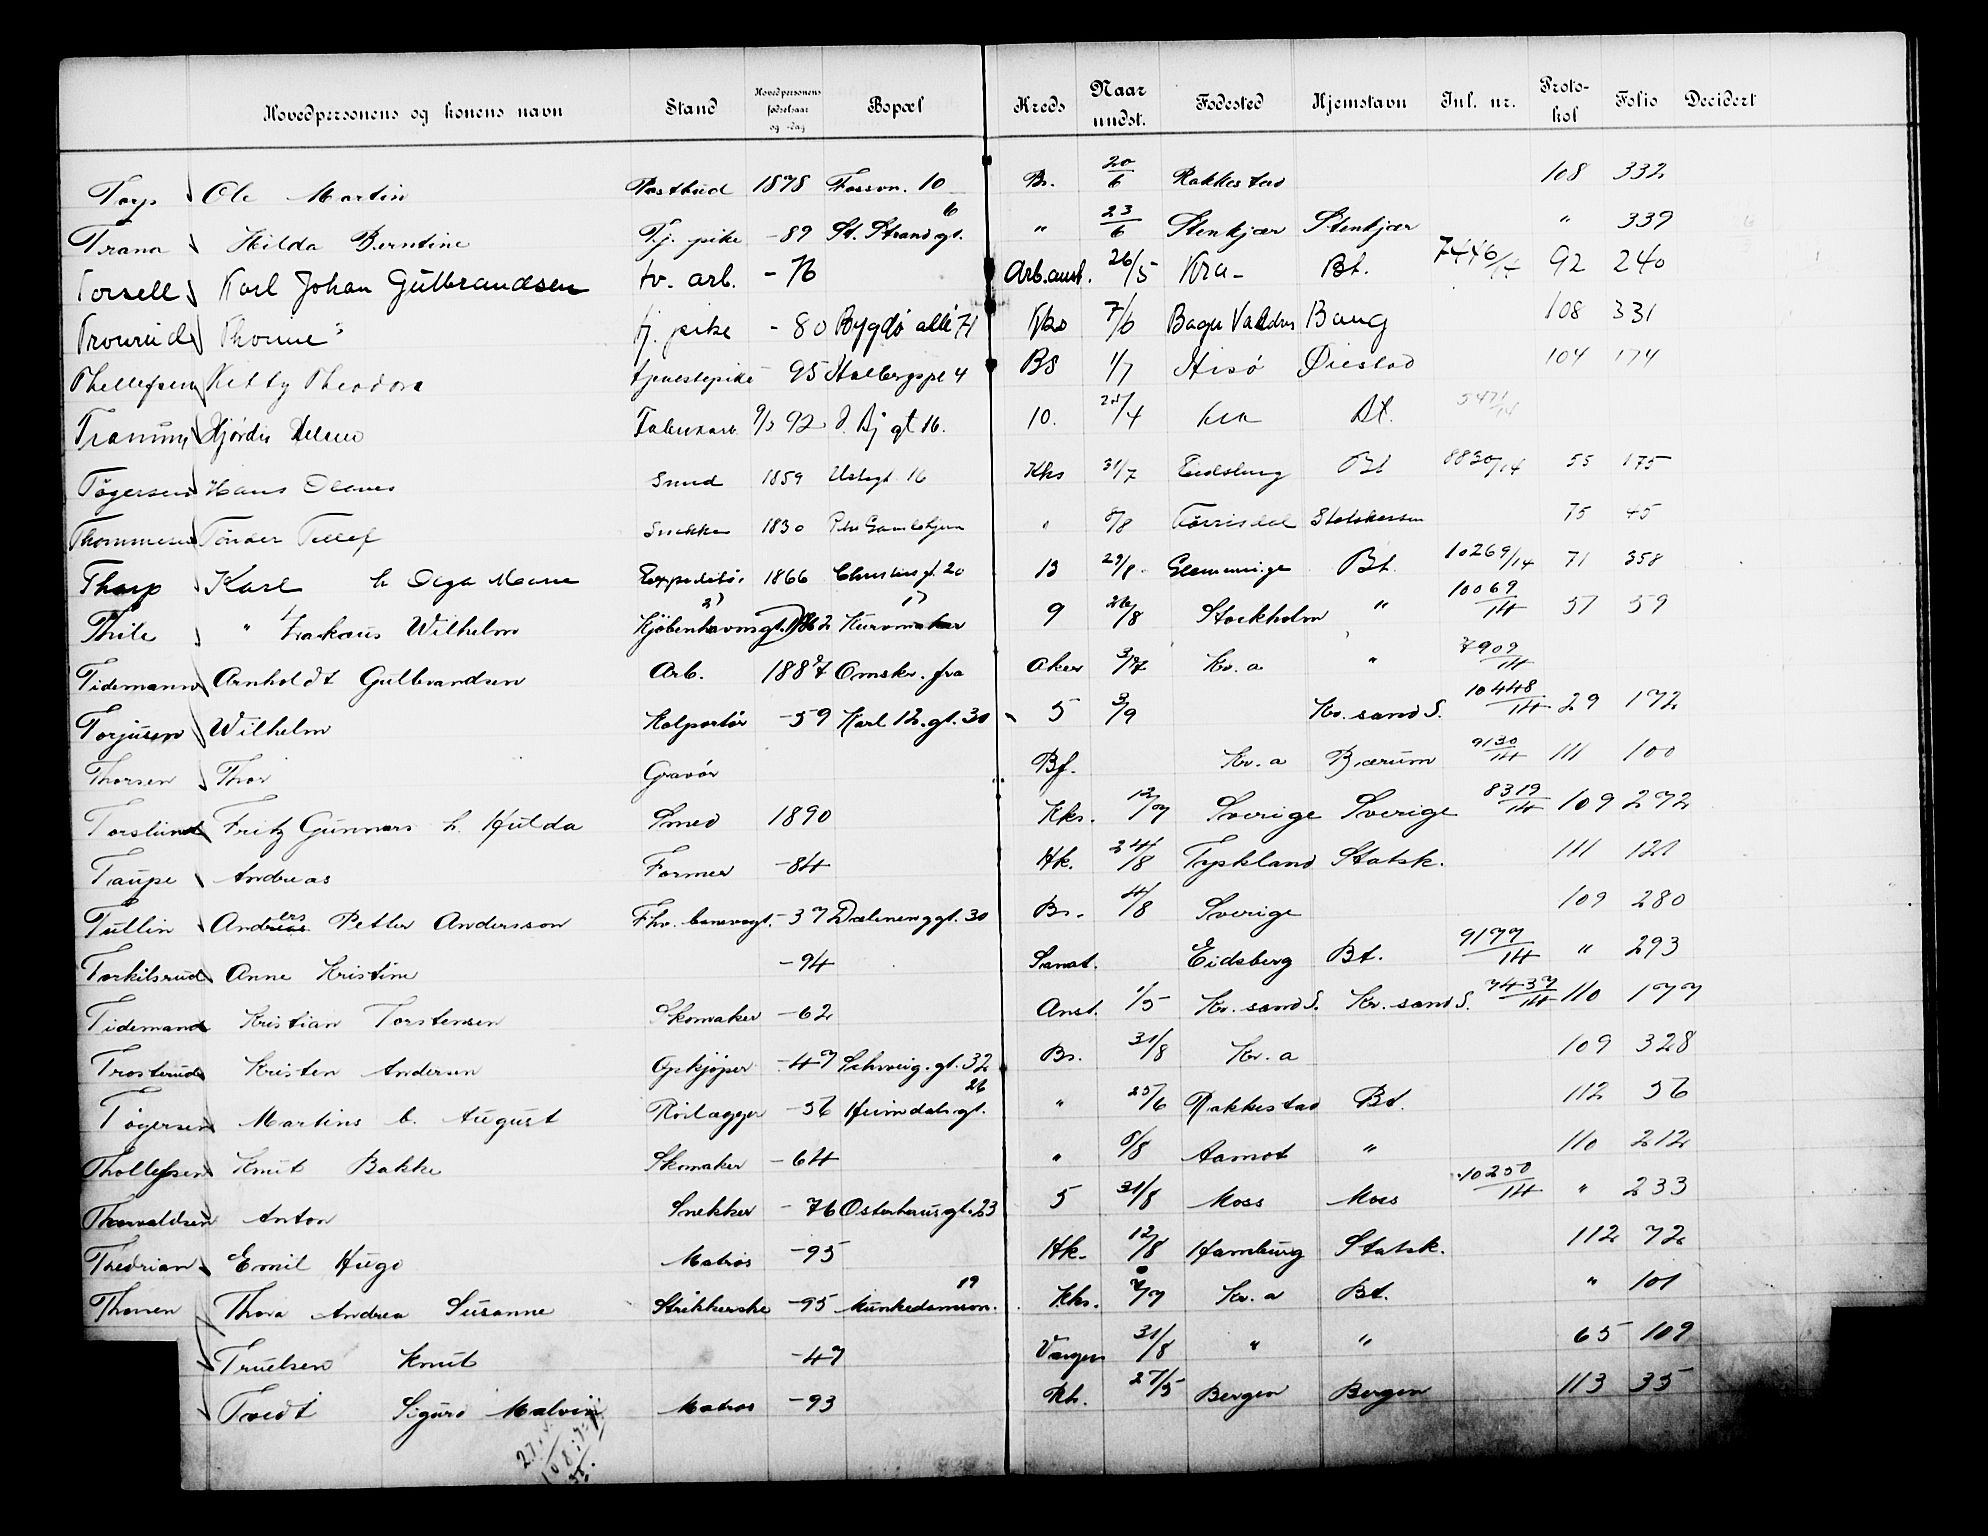 Hovedpersonens og konens navn Stand Hovedpersonens fødselsaar og -dag Bopæl Kreds Naar undst. Fødested Hjemstavn Inl. nr. Protokol Folio Decidert
Torp Ole Martin Postbud 1878 Fossvn. 10 Br. 20/6 Rakkestad 108 332
Trana Hilda Berntine Tj. pike -89 St. Strandgt. 6 " 23/6 Stenkjær Stenkjær " 339
Torsell Karl Johan Gulbrandsen fv. arb. -76 Arb.anst. 26/5 Kra- Bt. 7446/14 92 240
Tronrud Thorine tj. pike -80 Bygdø allé 71 7/6 Bagn Valdres Baug 108 331
Thellefsen Kitty Theodora tjenestepike 95 Holbergspl 4 BS 1/7 Hisø Øiestad 104 174
Hjørdis Helene 92 gt 16. 10. /4 Kra Bt. 5471/14
Tøgersen Hans Olaves Smed 1859 16 Kks 31/7 Eidsberg Bt 8830/14 55 175
Thommesen Tønder Tellef Snekker 1830 Gamlehjem " 5/8 75 45
Thorp Karl h Olga Marie Expeditør 1866 Christiesgt. 20 13 29/8 Glemminge Bt. 10269/14 71 358
Thile " Wilhelm Kjøbenhavnsgt. 1862 Kurvmaker 9 26/8 Stockholm " 10069/14 57 59
Tidemann Arnholdt Gulbrandsen Arb. 1887 Omskr. fra Aker 3/7 Kr.a " 7909/14
Torjusen Wilhelm Kolportør -59 Karl 12. gt. 30 5 3/9 Kr.sand S. 10448/14 29 172
Thorsen Thor Gravør Bf. Kr.a Bærum 9130/14 111 100
Torslund Fritz Gunnars h. Hulda Smed 1890 Kks. 12/7 Sverige Sverige 8319/14 109 272
Taupe Andreas Former -84 Hk. 24/8 Tyskland Statsk. 111 121
Tullin Anders Petter Andersson Fhv. banevogt. -37 Dælenenggt. 30 Br. 4/8 Sverige 109 280
Torkilsrud Anne Kristine -94 Sanat. Eidsberg Bt. 9177/14 " 293
Tidemand Kristian Torstensen Skomaker -62 Anst. 1/5 Kr.sand S. Kr.sand S. 7437/14 110 177
Trosterud Kristen Andersen Opkjøper -47 Schweig.gt. 32 Br. 31/8 Kr.a 109 328
Tøgersen Martins b. August Rørlægger -56 Heimdalsgt. 26 " 25/6 Rakkestad Bt. 112 56
Thollefsen Knut Bakke Skomaker -64 " 5/8 Aamot " 110 212
Thorvaldsen Anton Snekker -76 Osterhausgt. 23 5 31/8 Moss Moss 10250/14 " 233
Thedrian Emil Hugo Matros -95 Hk. 12/8 Hamburg Statsk. 112 72
Thonen Thora Andrea Susanne Strikkerske -95 Munkedamsvn. 19 Kks. 7/7 Kr.a Bt. " 101
Truelsen Knut -47 Vargen 31/8 " " 65 109
Tvedt Sigurd Malvin Matros -93 Kh. 27/5 Bergen Bergen 113 35